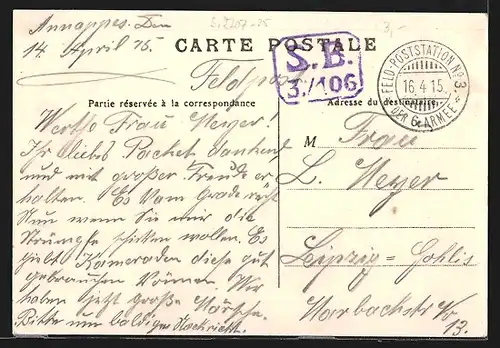 Annappes. Den
14. April 15.
CARTE POSTALE
Feldpost
S.B.
3./106
FELD-POSTSTATION No 3.
16.4.15.
DER 6. ARMEE
Partie réservée à la correspondance
Adresse du destinataire
Werthe Frau Meyer!
Ihr liebes Packet dankend
und mit großer Freude er
halten. Es
Nun wenn Sie mir die
Strümpfe schicken wollen. Es
giebt Kameraden diese gut
gebrauchen können. Wir
haben jetzt große Märsche.
Bitte um baldige Nachricht.
M Frau
L. Meyer
Leipzig-Gohlis
Marbachstr No
13.